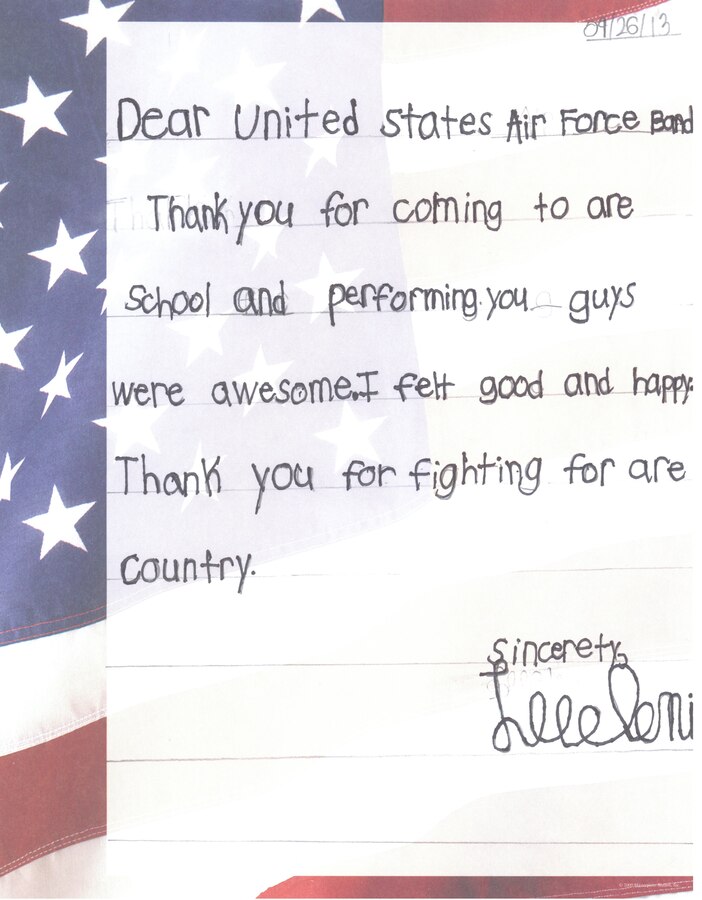 09/26/13
Dear United States Air Force Band
Thank you for coming to are
school and performing.you guys
were awesome.I felt good and happy.
Thank you for fighting for are
country.
Sincerety,